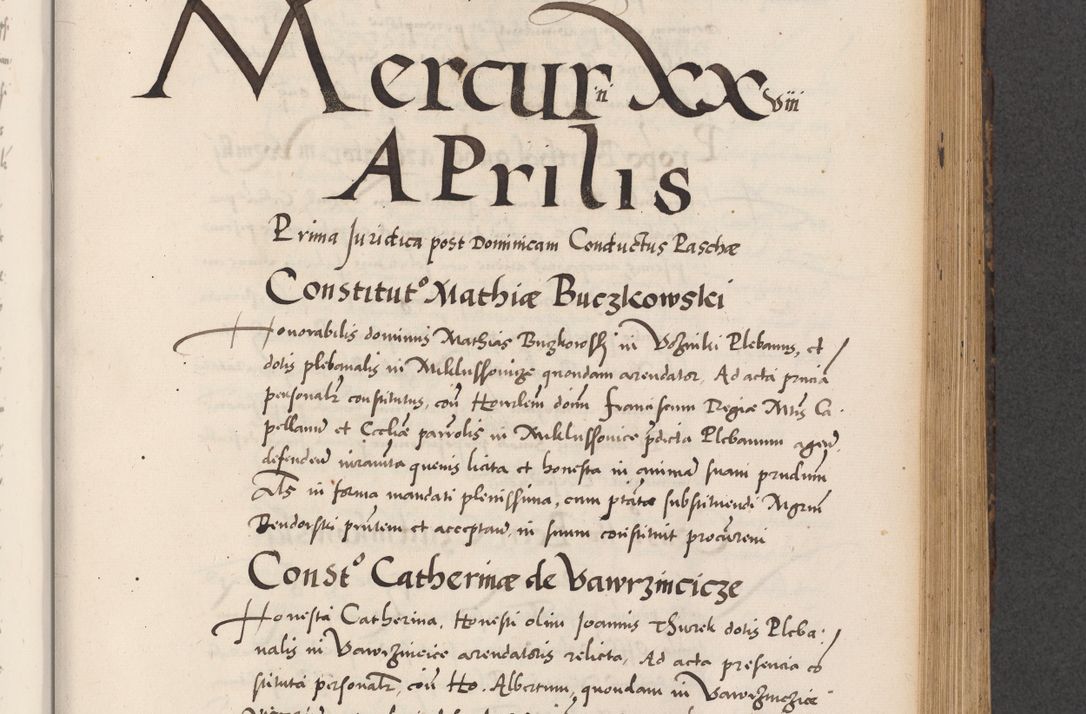 Mercurii XXviii
APrilis
Prima Juridica post Dominicam Conductus Paschæ
Constitutº Mathiæ Buczkowski
Honorabilis dominus Mathias Buczkowsky in Voznik Plebanus, et
dotis plebanalis in Miklussovicze quondam arendator, Ad acta
personalr constitutus, con Honrlem dom Franciscum Regiæ Mtis Ca-
pellanu et Ecclie parrolis in Miklussovice pdicta Plebanum agen
defenden iuramta quevis licita et honesta in animã suam
Als in forma mandati plenissima, cum ptate substituendi Mgrm
prntem et acceptan in suum constituit procurem
Constº Catherinæ de Vawrzincicze
Honesta Catherina, Honesti olim Joannis dotis Pleba-
nalis in Vawrzincice arendatoris relicta, Ad acta presencia co
stituta personalr, con Ho. Albertum, quondam in Vawrzinczice